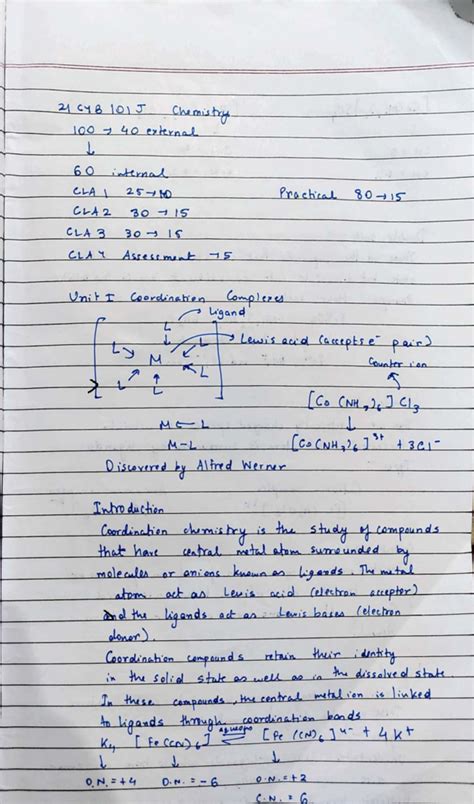 21 CYB 101 J Chemistry
100 → 40 external
↓
60 internal
CLA 1 25→10 Practical 80→15
CLA 2 30 → 15
CLA 3 30 → 15
CLA 4 Assessment →5
Unit I Coordination Complexes
Ligand
L
L L Lewis acid (accepts e⁻ pair)
M Counter ion
L L L
[Co (NH3)6] Cl3
M ← L ↓
M – L [Co(NH3)6]3+ + 3Cl-
Discovered by Alfred Werner
Introduction
Coordination chemistry is the study of compounds
that have central metal atom surrounded by
molecules or anions known as ligands. The metal
atom act as Lewis acid (electron acceptor)
and the ligands act as Lewis bases (electron
donor).
Coordination compounds retain their identity
in the solid state as well as in the dissolved state
In these compounds, the central metal ion is linked
to ligands through coordination bonds
K4 [Fe(CN)6] ⇌ aqueous [Fe (CN)6]4- + 4K+
↓ ↓ ↓
O.N. = +4 O.N. = -6 O.N. = +2
C.N. = 6